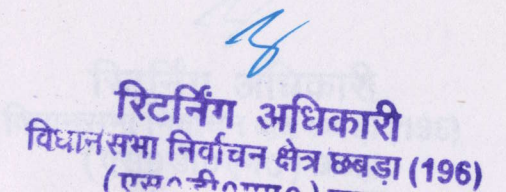 रिटर्निंग अधिकारी
विधानसभा निर्वाचन क्षेत्र छबड़ा (196)